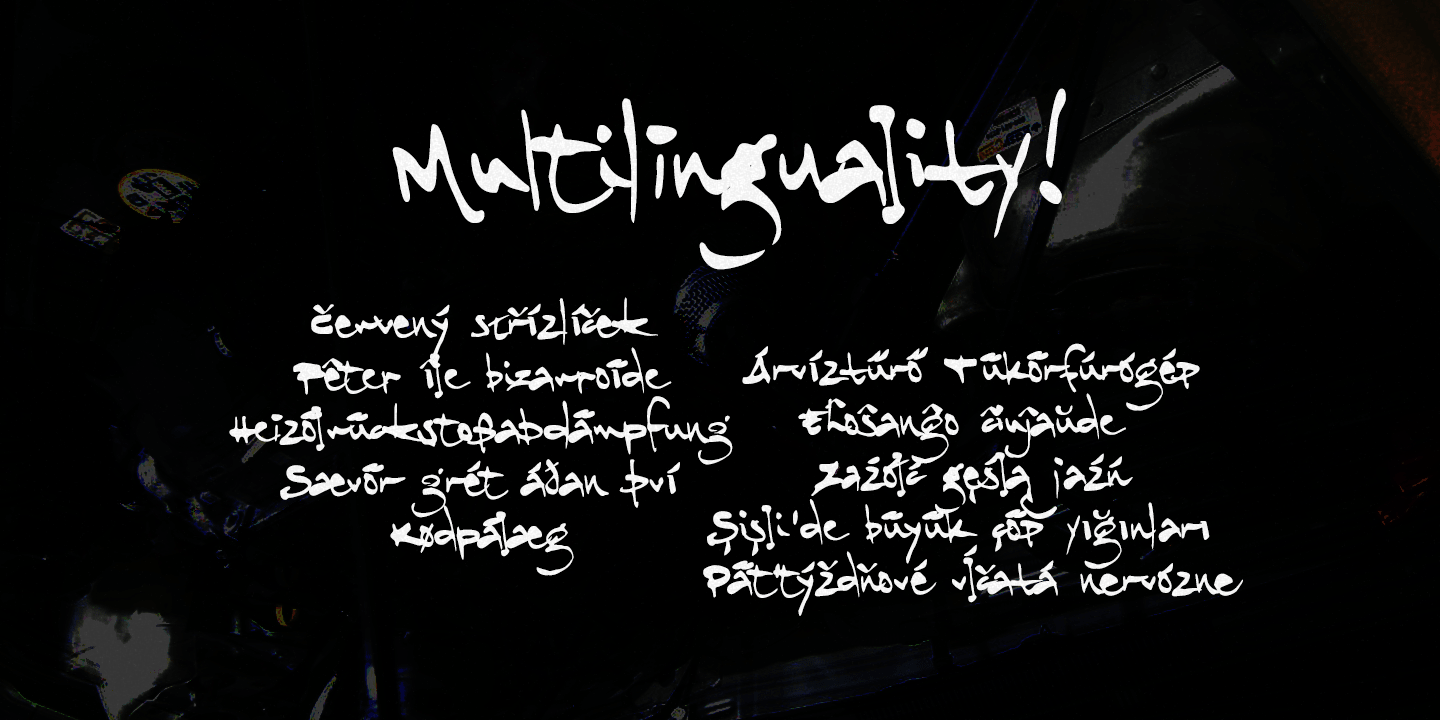 Multilinguality!
červený střízlíček
Pêter íĵe bizarroïde
Heizölrückstoßabdämpfung
Sævör grét áðan því
kødpålæg
Árvíztűrő Tükörfúrógép
Eĥoŝanĝo ĉiuĵaŭde
Zażółć gęślą jaźń
Şişli'de büyük çöp yığınları
Päťtýždňové vĺčatá nervózne